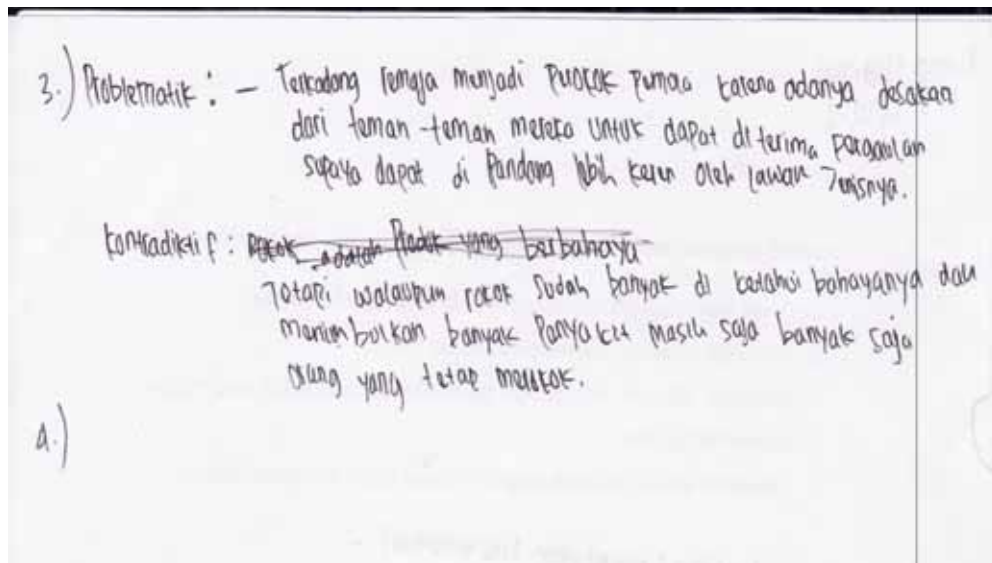 3.) Problematik : - Terkadang remaja menjadi perokok pemula karena adanya desakan
dari teman-teman mereka untuk dapat di terima pergaulan
supaya dapat di pandang lebih keren oleh lawan Jenisnya.
kontradiktif : Rokok adalah Produk yang berbahaya
Tetapi walaupun rokok sudah banyak di ketahui bahayanya dan
menimbulkan banyak Penyakit masih saja banyak saja
orang yang tetap merokok.
4.)